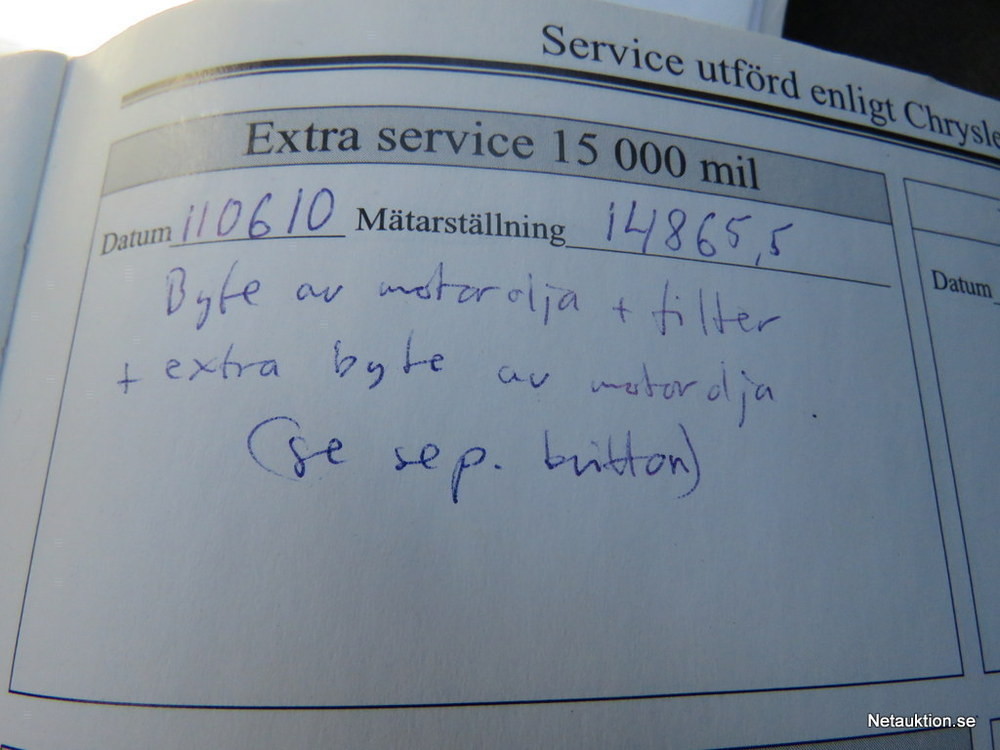 Service utförd enligt Chrysle
Extra service 15 000 mil
Datum 110610 Mätarställning 14865,5
Datum
Byte av motorolja + filter
+ extra byte av motorolja.
(se sep. kvitton)
Netauktion.se